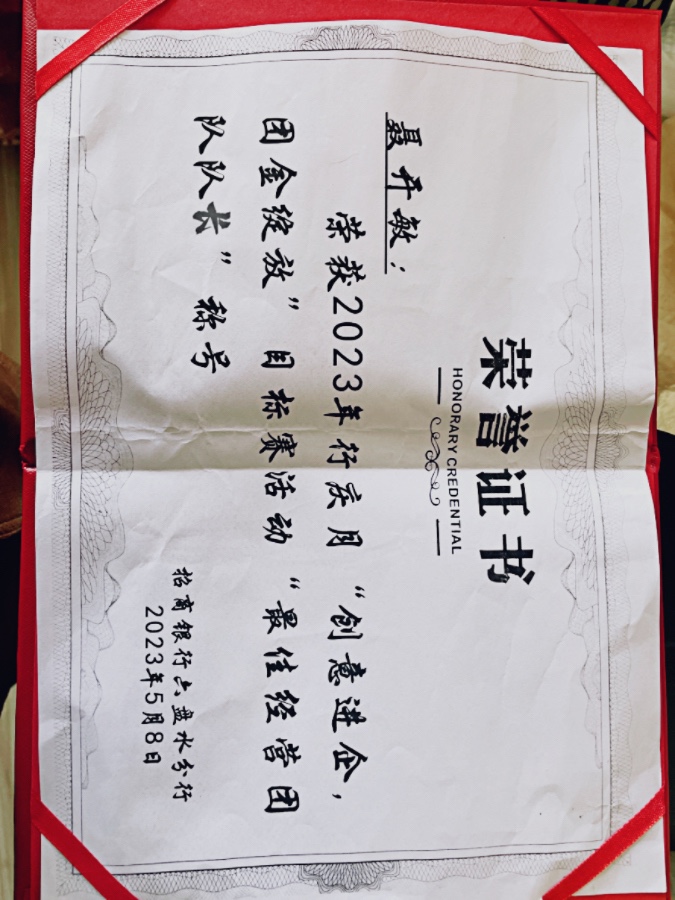 荣誉证书
HONORARY CREDENTIAL
聂开敏：
荣获2023年行庆月“创意进企，
团金绽放”目标赛活动“最佳经营团
队队长”称号
招商银行六盘水分行
2023年5月8日